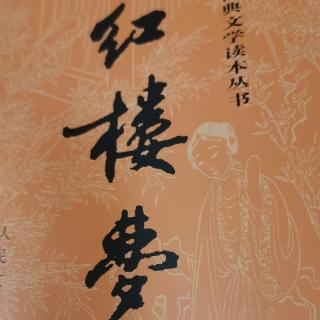 典文学读本丛书
红楼夢
人民